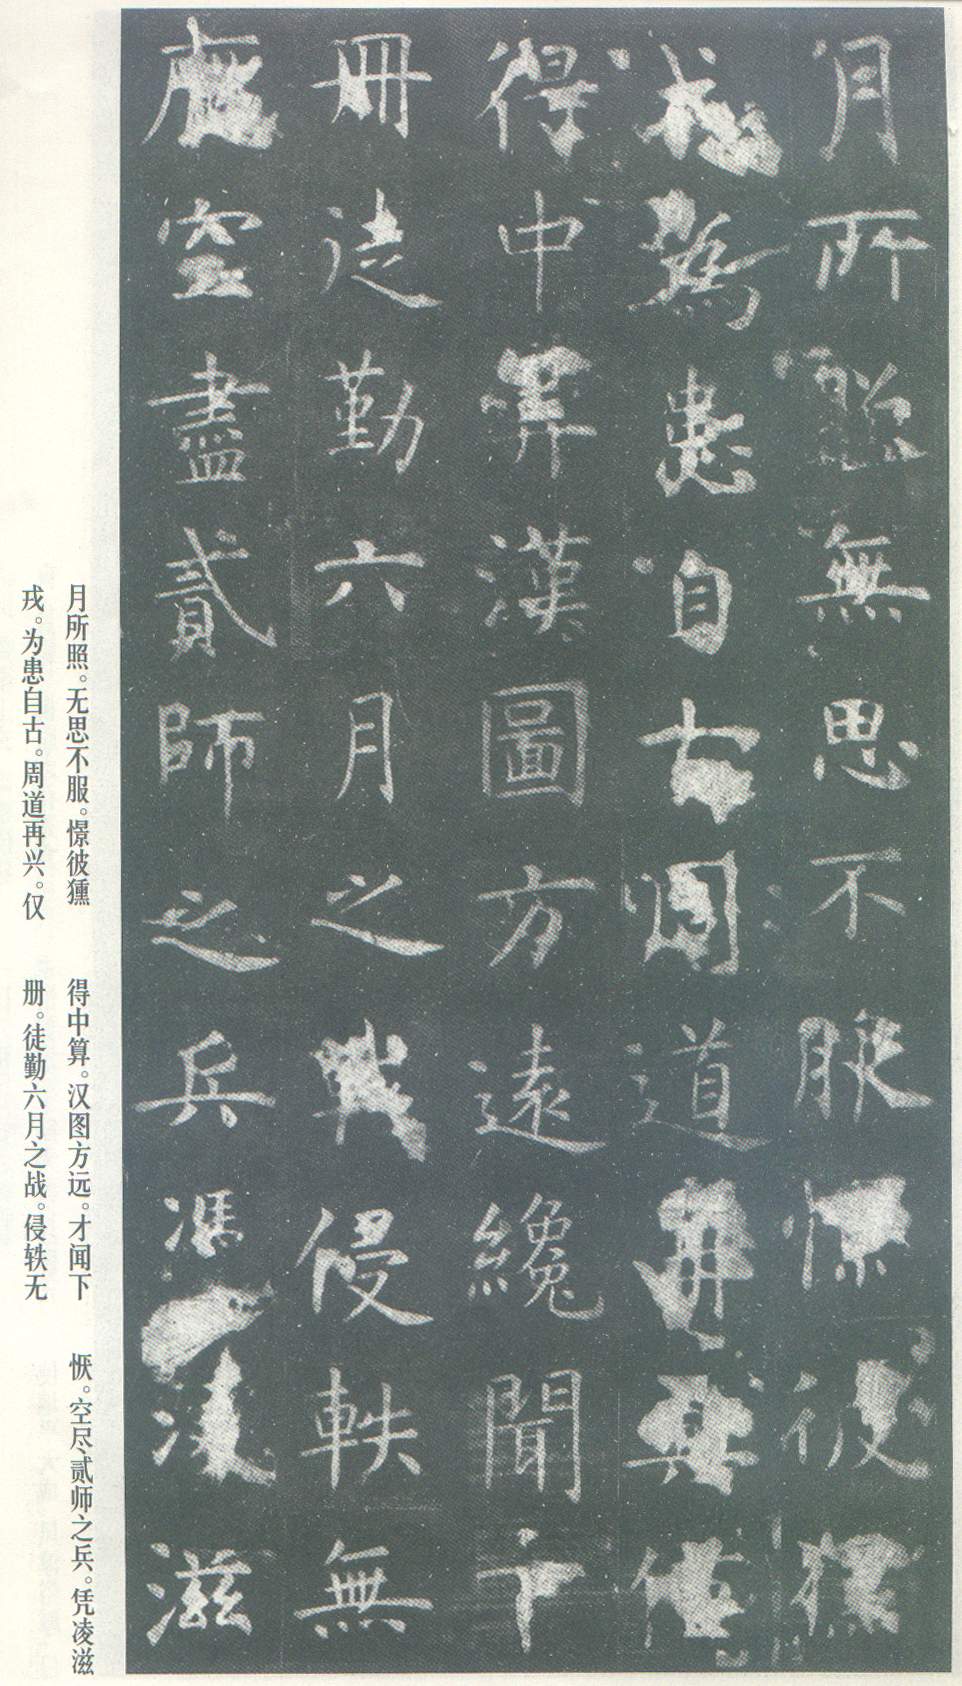 月所照無思不服憬彼獯
戎為患自古周道再興僅
得中筭漢圖方遠纔聞下
冊徒勤六月之戰侵軼無
空盡貳師之兵馮凌滋
月所照。无思不服。憬彼獯
戎。为患自古。周道再兴。仅
得中算。汉图方远。才闻下
册。徒勤六月之战。侵轶无
恹。空尽、贰师之兵。凭凌滋